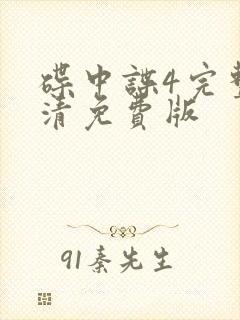 碟中諜4完整
清免費版
91秦先生